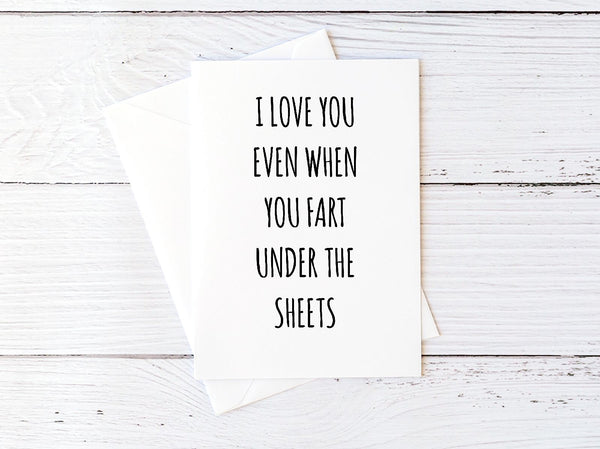 I LOVE YOU
EVEN WHEN
YOU FART
UNDER THE
SHEETS